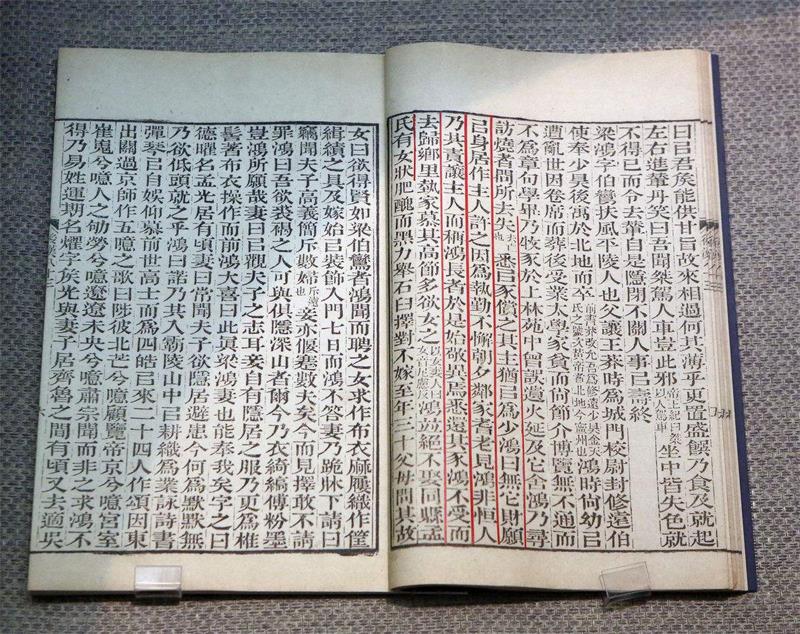 曰㠯君侯能供甘旨故來相過何其薄乎更置盛饌乃食及就起
左右進輦丹笑曰吾聞桀駕人車豈此邪帝王紀曰桀以人駕車坐中皆失色就
不得已而令去輦自是隱閉不關人事㠯壽終
梁鴻字伯鸞扶風平陵人也父讓王莽時爲城門校尉封修遠伯
使奉少昊後寓於北地而卒前書莽改允吾爲修遠少昊金天氏之號次黃帝者北地今寧州也鴻時尚幼㠯
遭亂世因卷席而葬後受業太學家貧而尚節介博覽無不通而
不爲章句學畢乃牧豕於上林苑中曾誤遺火延及它舍鴻乃尋
訪燒者問所去失去亡也悉㠯豕償之其主猶㠯爲少鴻曰無它財願
㠯身居作主人許之因爲執勤不懈朝夕鄰家耆老見鴻非恒人
乃共責讓主人而稱鴻長者於是始敬異焉悉還其豕鴻不受而
去歸鄉里埶家慕其高節多欲女之以女妻人曰女音尼慮反鴻並絕不娶同縣孟
氏有女狀肥醜而黑力舉石臼擇對不嫁至年三十父母問其故
女曰欲得賢如梁伯鸞者鴻聞而聘之女求作布衣麻屨織作筐
緝績之具及嫁始㠯裝飾入門七日而鴻不荅妻乃跪牀下請曰
竊聞夫子高義簡斥數婦斥遠也妾亦偃蹇數夫矣今而見擇敢不請
罪鴻曰吾欲裘褐之人可與俱隱深山者爾今乃衣綺縞傅粉墨
豈鴻所願哉妻曰㠯觀夫子之志耳妾自有隱居之服乃更爲椎
髻著布衣操作而前鴻大喜曰此眞梁鴻妻也能奉我矣字之曰
德曜名孟光居有頃妻曰常聞夫子欲隱居避患今何爲默默無
乃欲低頭就之乎鴻曰諾乃共入霸陵山中㠯耕織爲業詠詩書
彈琴㠯自娛仰慕前世高士而爲四皓㠯來二十四人作頌因東
出關過京師作五噫之歌曰陟彼北芒兮噫顧覽帝京兮噫宮室
崔嵬兮噫人之劬勞兮噫遼遼未央兮噫肅宗聞而非之求鴻不
得乃易姓運期名燿字侯光與妻子居齊魯之間有頃又去適吳